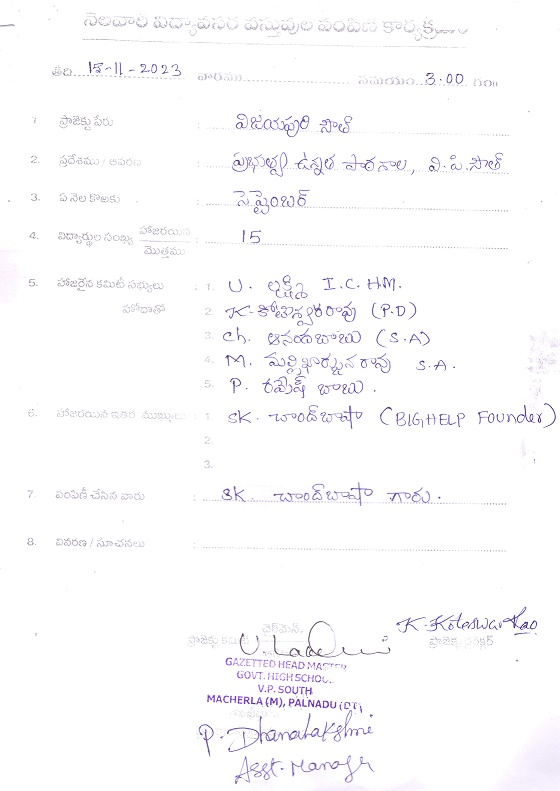 నెలవారీ విద్యావసర వస్తువుల పంపిణీ కార్యక్రమం
తేది 15-11-2023 వారము సమయం 3:00 గం॥
1. ప్రాజెక్టు పేరు : విజయపురి సౌత్
2. ప్రదేశము / ఆవరణ : ప్రభుత్వ ఉన్నత పాఠశాల, వి.పి.సౌత్
3. ఏ నెల కొఱకు : సెప్టెంబర్
4. విద్యార్థుల సంఖ్య హాజరయిన : 15
మొత్తము
5. హాజరైన కమిటీ సభ్యులు : 1. U. లక్ష్మి I.C. HM.
హోదాతో 2. K. కోటేశ్వరరావు (P.D)
3. Ch. ఆనందబాబు (S.A)
4. M. మల్లిఖార్జునరావు S.A.
5. P. రమేష్ బాబు.
6. హాజరయిన ఇతర ముఖ్యులు : 1. SK. చాంద్‌బాషా (BIGHELP Founder)
2.
3.
7. పంపిణీ చేసిన వారు : SK. చాంద్‌బాషా గారు.
8. వివరణ / సూచనలు :
K. Koteswar Rao
చైర్‌మెన్
ప్రాజెక్టు కమిటీ ప్రాజెక్టు డైరెక్టర్
GAZETTED HEAD MASTER
GOVT. HIGH SCHOOL
V.P. SOUTH
MACHERLA (M), PALNADU (DT)
P. Dhanalakshmi
Asst. Manager